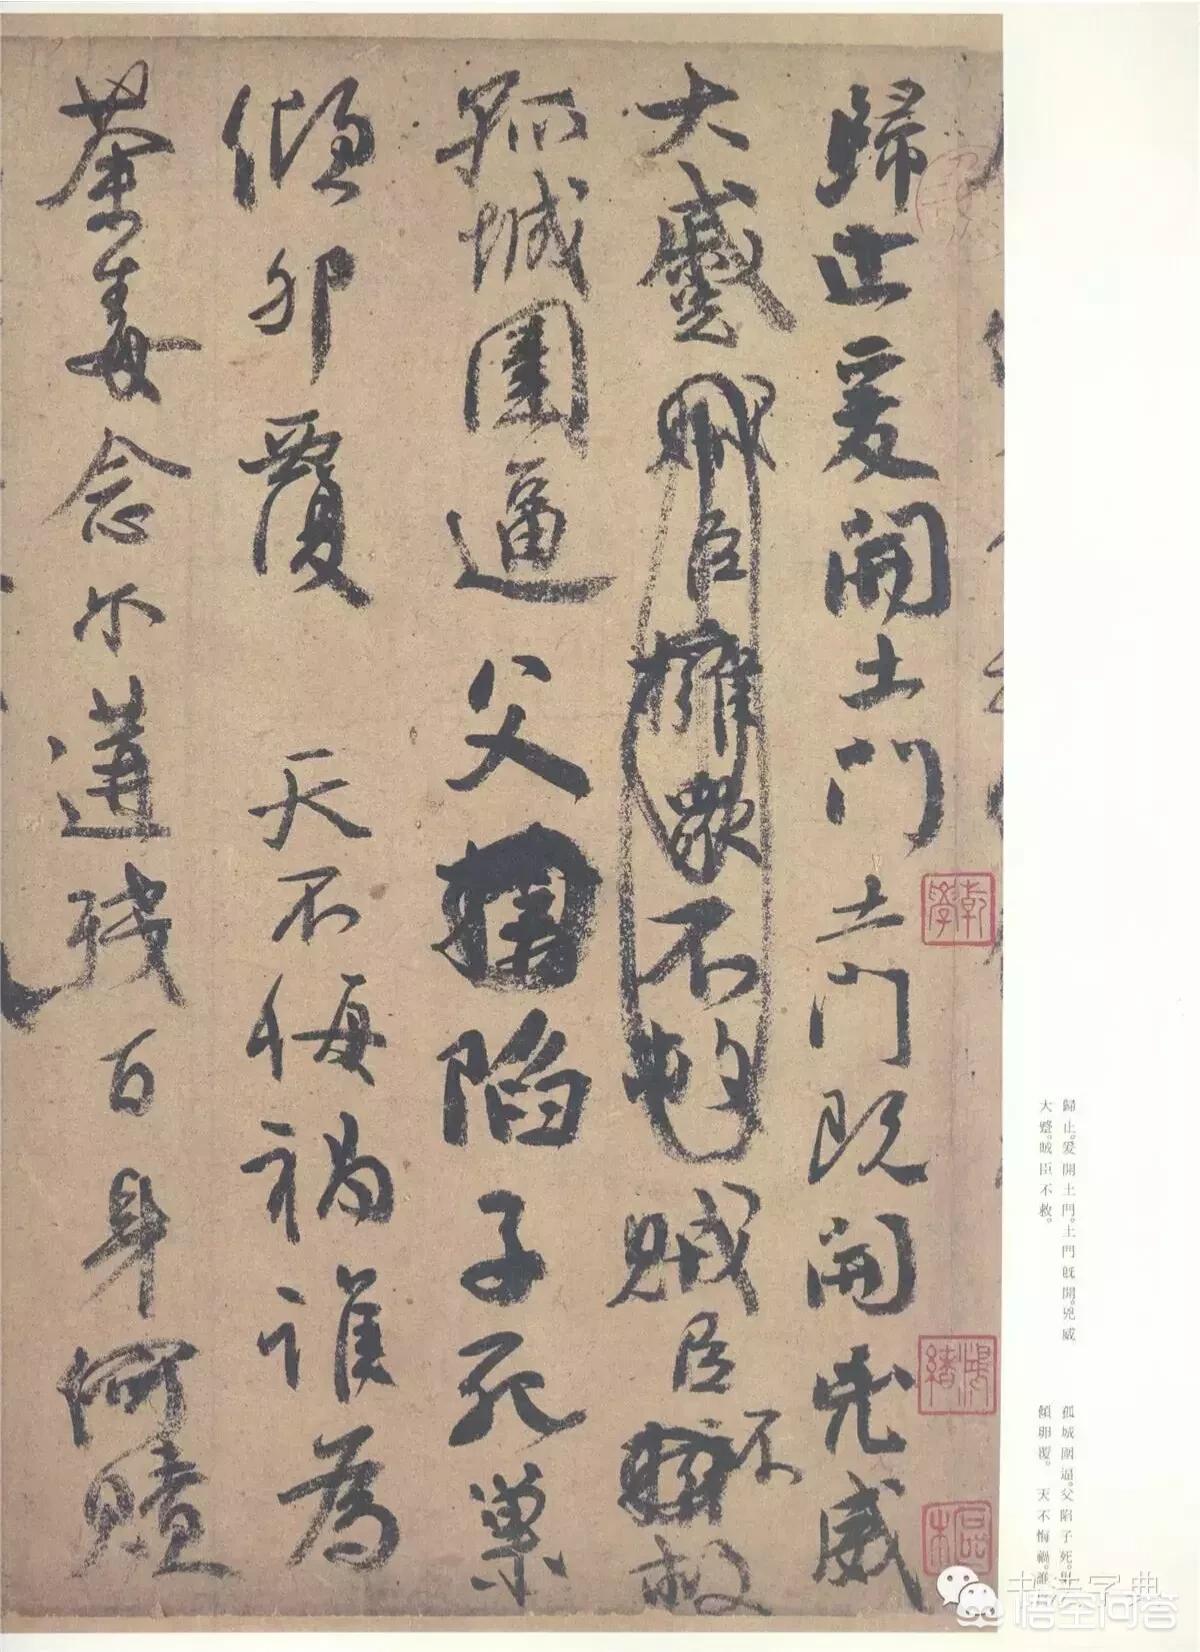 歸止爰開土門土門既開兇威
大蹙賊臣擁衆不救賊臣不救
孤城圍逼父陷子死巢
傾卵覆 天不悔禍誰為
荼毒念爾遘殘百身何贖
乾學
鴻緒
歸止。爰開土門。土門既開。兇威
大蹙。賊臣不救。
孤城圍逼。父陷子死。巢
傾卵覆。 天不悔禍。誰
书法字典
悟空问答